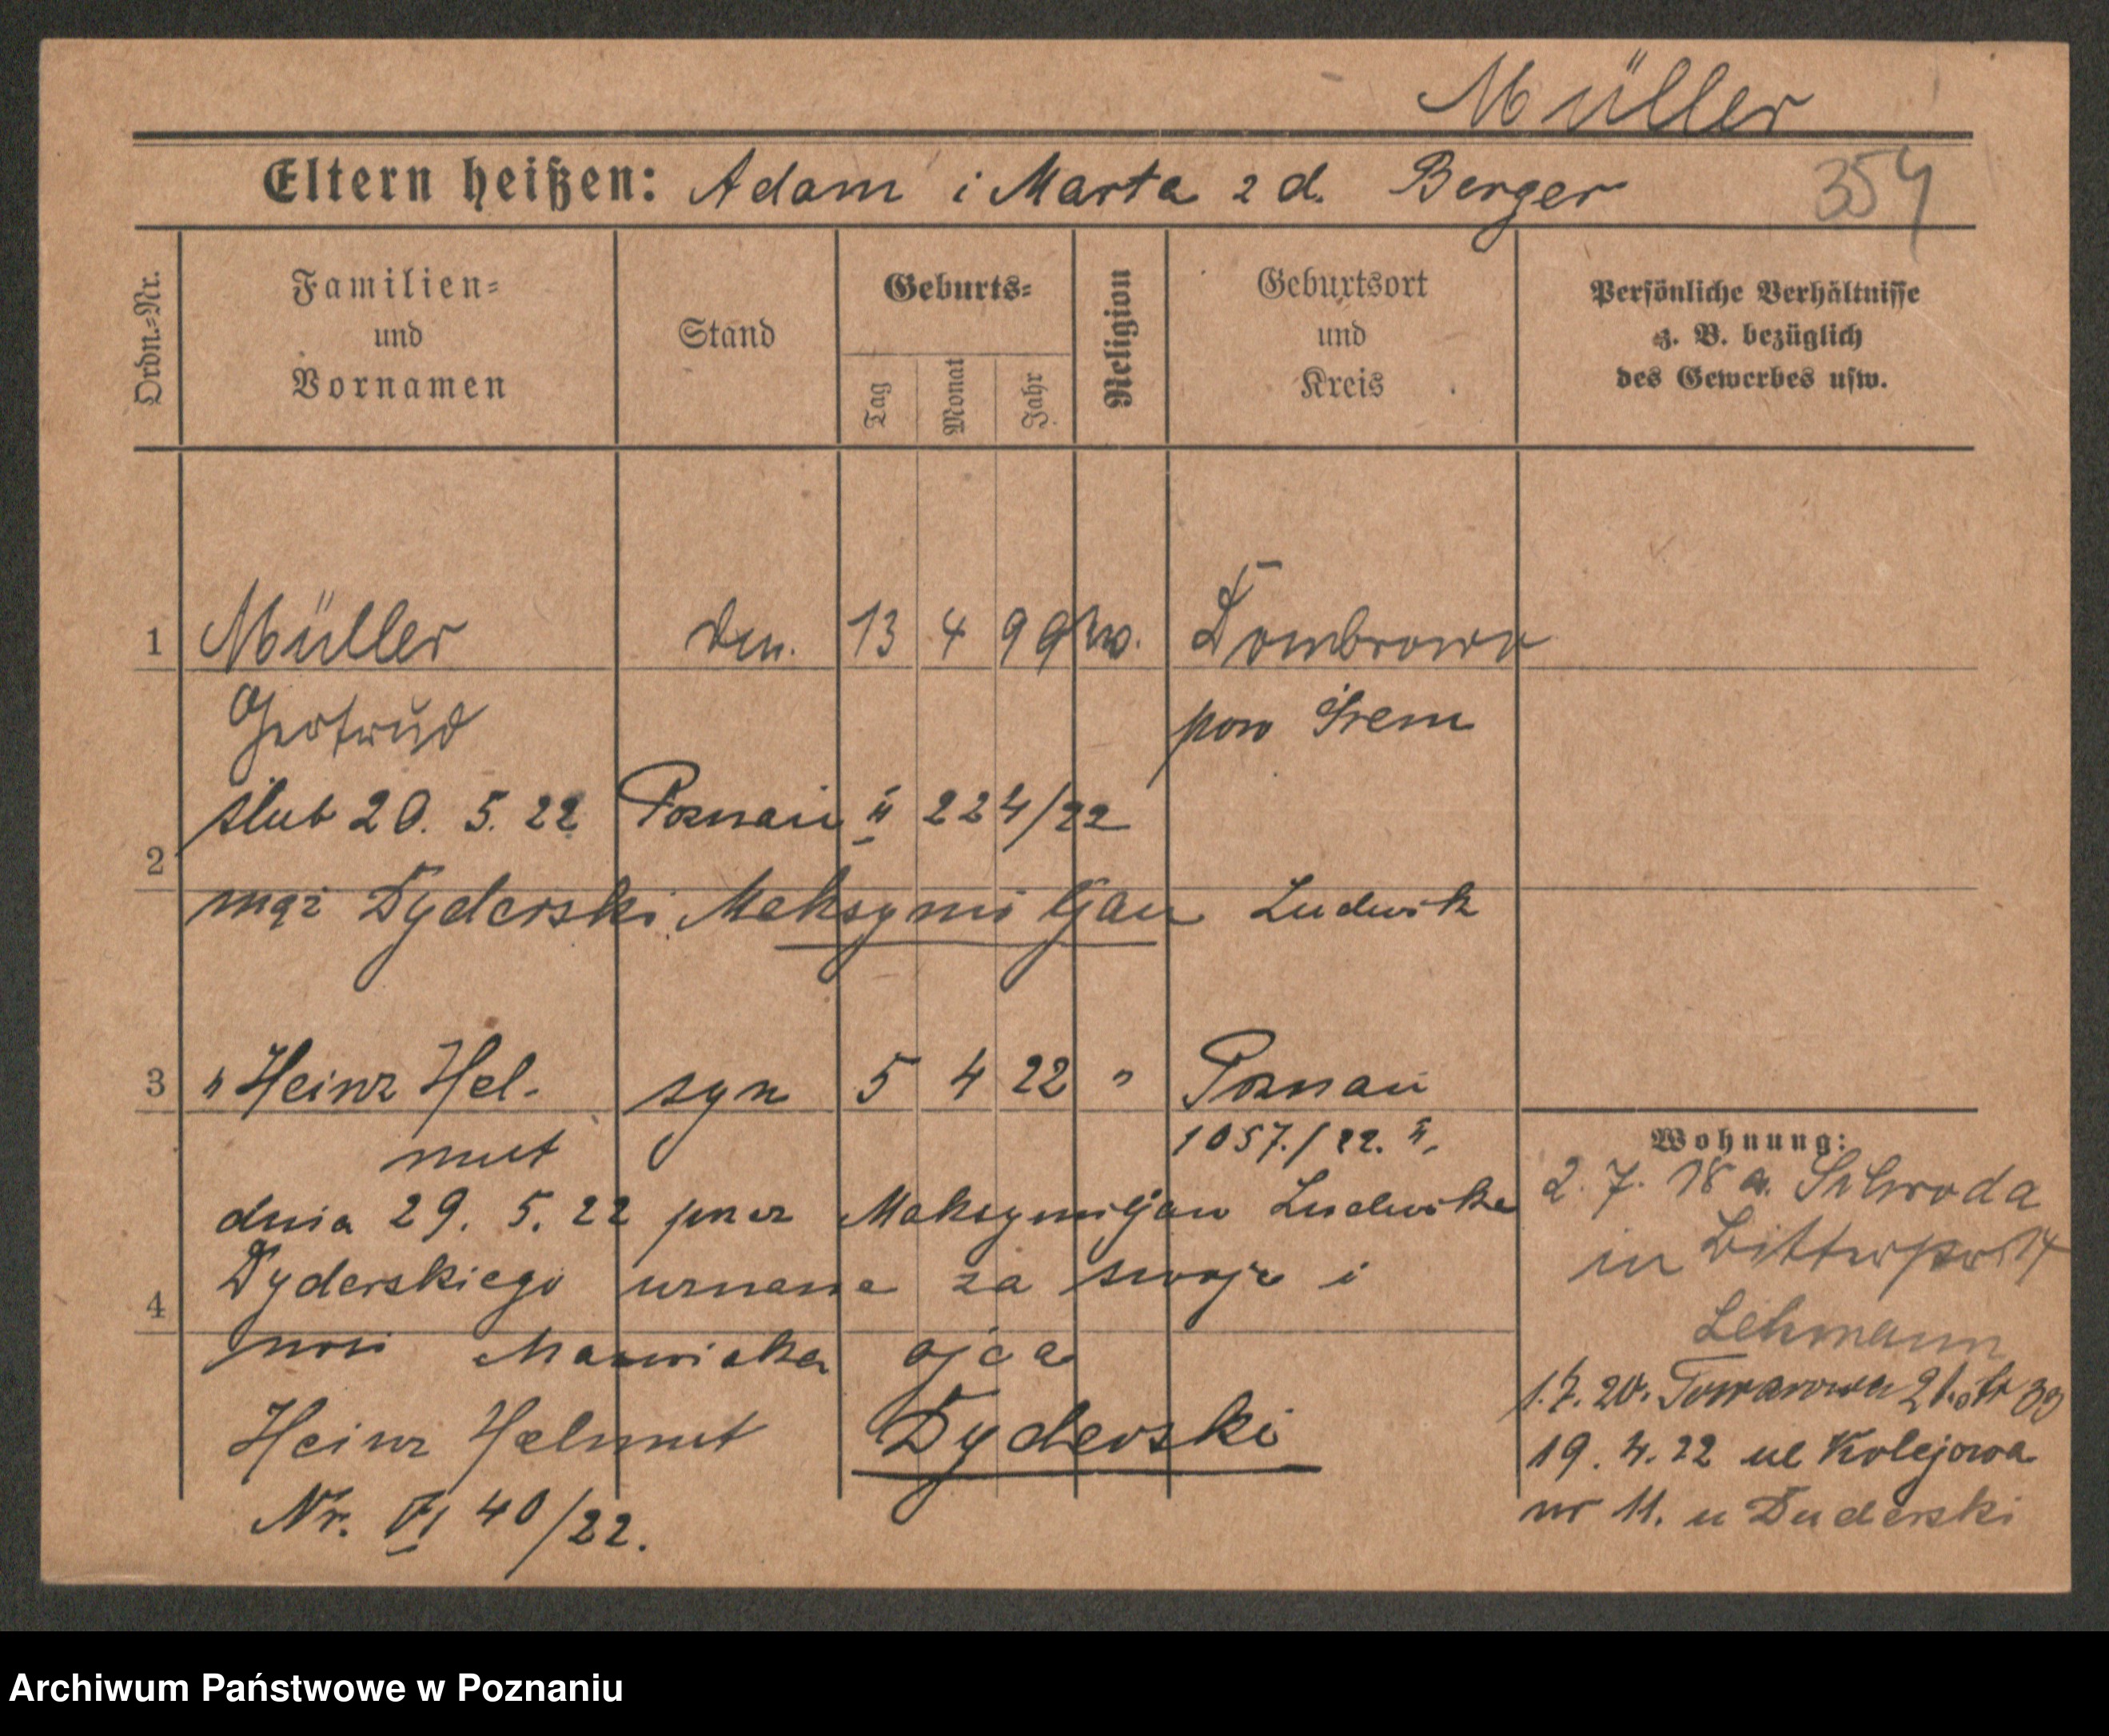 Müller
Eltern heißen: Adam i Marta z d. Berger 354
Ordn.=Nr. Familien= und Vornamen Stand Geburts= Tag Monat Jahr Religion Geburtsort und Kreis Persönliche Verhältnisse z. B. bezüglich des Gewerbes usw.
1 Müller 13 4 99 Dombrowa
Gertrud pow Śrem
ślub 20. 5. 22 Poznań II 224/22
2
mąż Dyderski Maksymiljan Ludwik
3 " Heinz Hel- syn 5 4 22 " Poznań
mut 1057./22. II.
dnia 29. 5. 22 przez Maksymiljana Ludwika
Dyderskiego uznane za swoje i
4
nosi nazwisko ojca
Heinz Helmut Dyderski
Nr. VI 40/22.
Wohnung:
2. 7. 18 a. Schroda
in
Lehmann
1.7.20. Towarowa 21
19. 4. 22 ul Kolejowa
nr 11. u Duderski
Archiwum Państwowe w Poznaniu